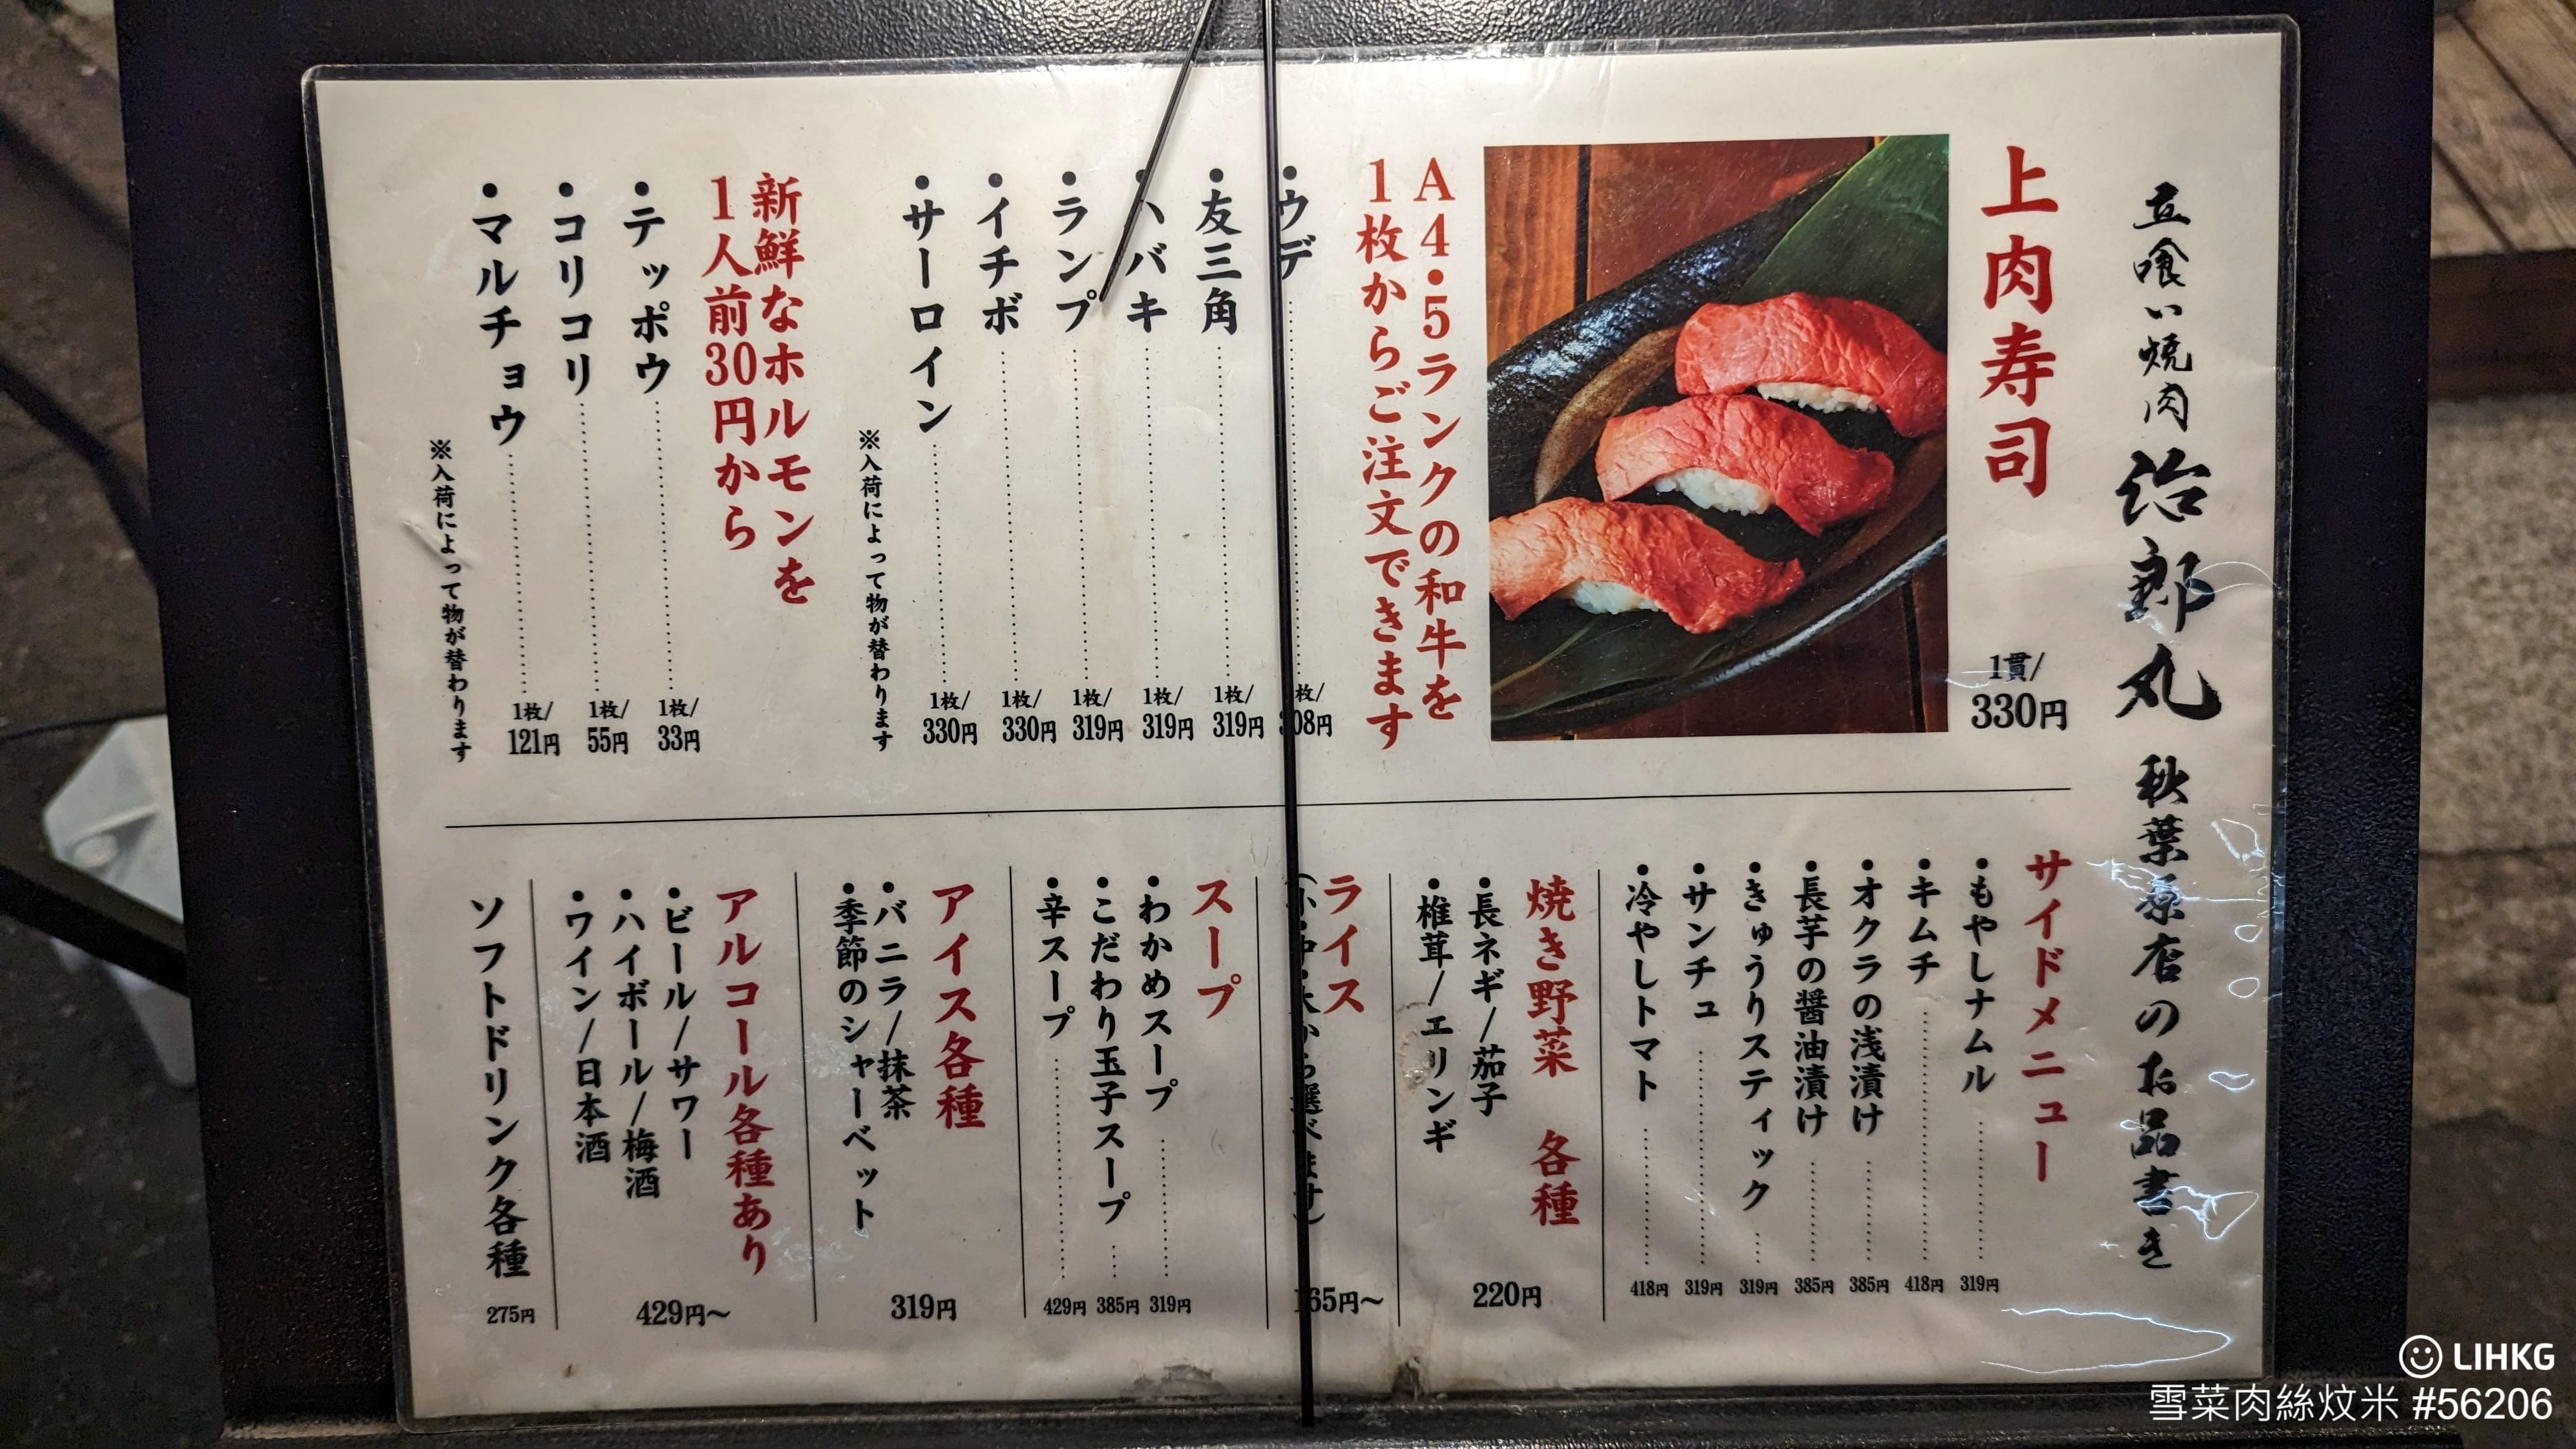 立喰い焼肉 治郎丸 秋葉原店のお品書き
上肉寿司
1貫/
330円
A4・5ランクの和牛を
1枚からご注文できます
・ウデ 枚/ 308円
・友三角 1枚/ 319円
ハバキ 1枚/ 319円
・ランプ 1枚/ 319円
・イチボ 1枚/ 330円
・サーロイン 1枚/ 330円
※入荷によって物が替わります
新鮮なホルモンを
1人前30円から
・テッポウ 1枚/ 33円
・コリコリ 1枚/ 55円
・マルチョウ 1枚/ 121円
※入荷によって物が替わります
サイドメニュー
・もやしナムル 319円
・キムチ 418円
・オクラの浅漬け 385円
・長芋の醤油漬け 385円
・きゅうりスティック 319円
・サンチュ 319円
・冷やしトマト 418円
焼き野菜 各種
・長ネギ/茄子
・椎茸/エリンギ
220円
ライス
(小・中・大から選べます)
165円〜
スープ
・わかめスープ 319円
・こだわり玉子スープ 385円
・辛スープ 429円
アイス各種
・バニラ/抹茶
・季節のシャーベット
319円
アルコール各種あり
・ビール/サワー
・ハイボール/梅酒
・ワイン/日本酒
429円〜
ソフトドリンク各種 275円
LIHKG
雪菜肉絲炆米 #56206